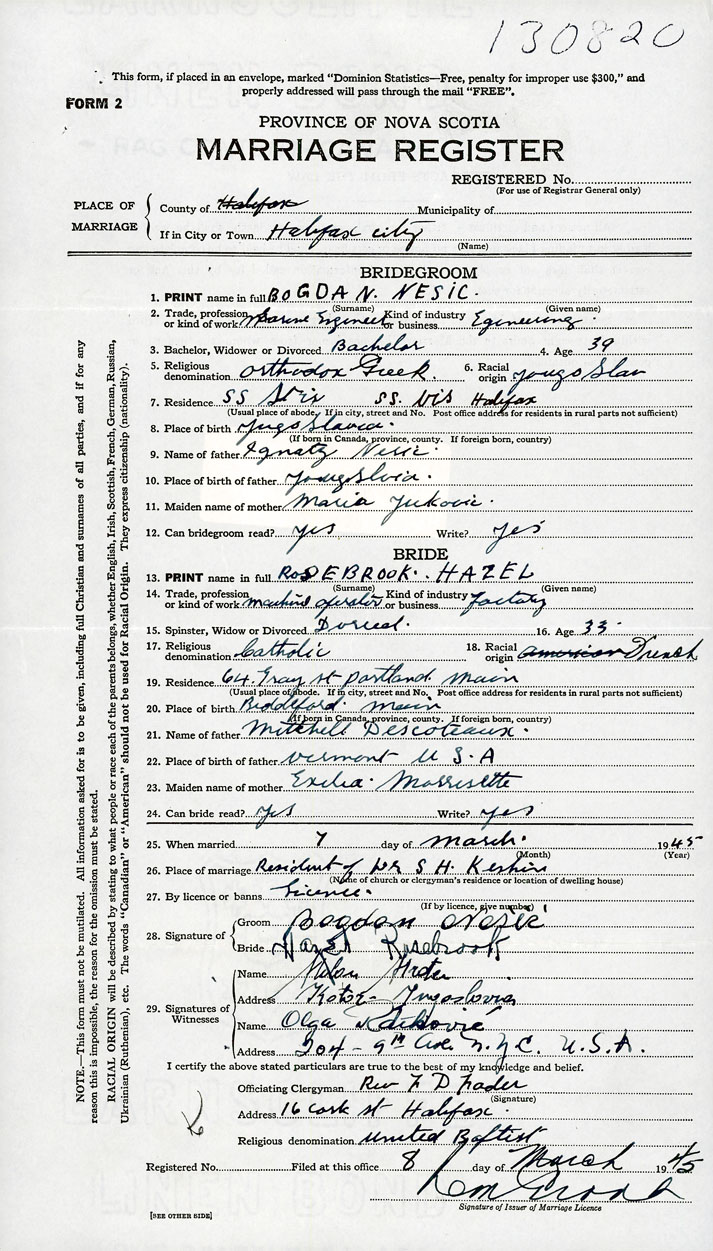 130820
This form, if placed in an envelope, marked "Dominion Statistics—Free, penalty for improper use $300," and
properly addressed will pass through the mail "FREE".
FORM 2
PROVINCE OF NOVA SCOTIA
MARRIAGE REGISTER
REGISTERED No.
(For use of Registrar General only)
PLACE OF MARRIAGE
County of Halifax Municipality of
If in City or Town Halifax city
(Name)
BRIDEGROOM
1. PRINT name in full BOGDAN N. NESIC.
(Surname) (Given name)
2. Trade, profession or kind of work Marine Engineer Kind of industry or business Egineering.
3. Bachelor, Widower or Divorced Bachelor 4. Age 39
5. Religious denomination Orthodox Greek. 6. Racial origin Jougo Slav
7. Residence SS SS. Vis Halifax
(Usual place of abode. If in city, street and No. Post office address for residents in rural parts not sufficient)
8. Place of birth Jugo Slavia.
(If born in Canada, province, county. If foreign born, country)
9. Name of father Ignatz Nesic.
10. Place of birth of father Jougslvia.
11. Maiden name of mother Maria Jukovic.
12. Can bridegroom read? yes Write? yes
BRIDE
13. PRINT name in full ROSEBROOK. HAZEL
(Surname) (Given name)
14. Trade, profession or kind of work machine operator Kind of industry or business factory
15. Spinster, Widow or Divorced 16. Age 33
17. Religious denomination Catholic 18. Racial origin american French
19. Residence 64 Gray st portland main
(Usual place of abode. If in city, street and No. Post office address for residents in rural parts not sufficient)
20. Place of birth Biddeford. main
(If born in Canada, province, county. If foreign born, country)
21. Name of father Mitchell Descoteaux.
22. Place of birth of father Vermont U S A
23. Maiden name of mother Exilia Morrisette
24. Can bride read? yes Write? yes
25. When married 7 day of March. 1945
(Month) (Year)
26. Place of marriage Resident of Dr S H Keshin
(Name of church or clergyman's residence or location of dwelling house)
27. By licence or banns Licence.
(If by licence, give number)
28. Signature of
Groom Bogdan Nešić
Bride Hazel Rosebrook
29. Signatures of Witnesses
Name Milan
Address Kotor - Jugoslovia
Name Olga
Address 204 - 9th Ave. N.Y.C. U.S.A.
I certify the above stated particulars are true to the best of my knowledge and belief.
Officiating Clergyman Rev F D Frader
(Signature)
Address 16 Cork st Halifax.
Religious denomination United Baptist
Registered No. Filed at this office 8 day of March 1945
Signature of Issuer of Marriage Licence
[SEE OTHER SIDE]
NOTE.—This form must not be mutilated. All information asked for is to be given, including full Christian and surnames of all parties, and if for any
reason this is impossible, the reason for the omission must be stated.
RACIAL ORIGIN will be described by stating to what people or race each of the parents belongs, whether English, Irish, Scottish, French, German, Russian,
Ukrainian (Ruthenian), etc. The words "Canadian" or "American" should not be used for Racial Origin. They express citizenship (nationality).